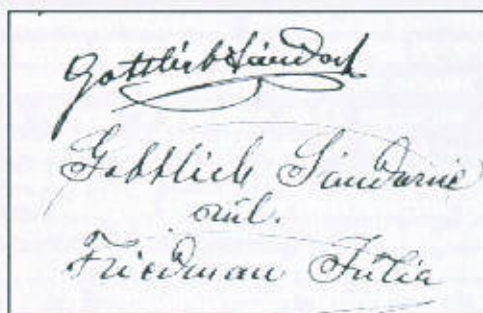 Gottlieb Sándor
Gottlieb Sándorné
szül.
Friedman Júlia